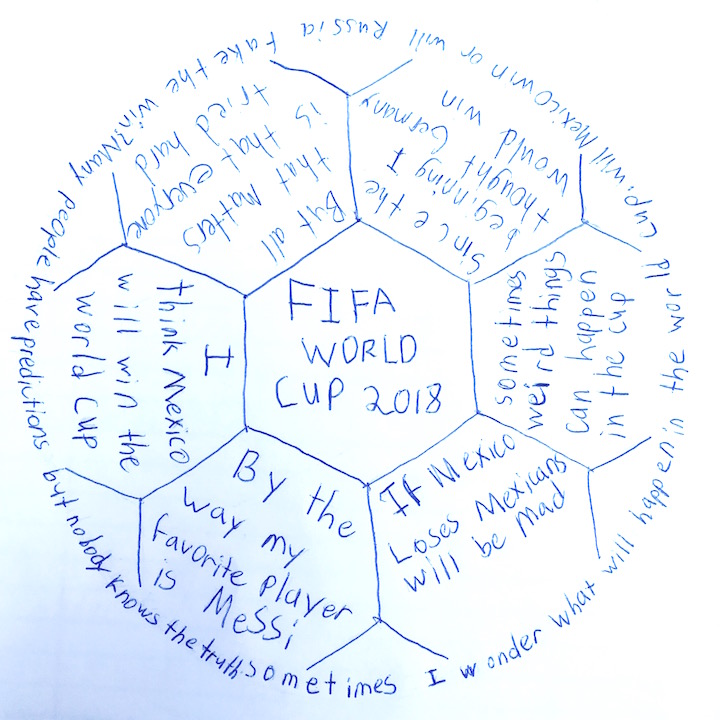 FIFA
WORLD
CUP 2018
But all
that matters
is that everyone
tried hard
Since the
beginning I
thought Germany
would win
sometimes
weird things
can happen
in the cup
If Mexico
Loses Mexicans
will be mad
By the
way my
favorite player
is Messi
I
think Mexico
will win the
world cup
Many people have predictions but nobody knows the truth. Sometimes I wonder what will happen in the world cup, will Mexico win or will Russia Take the win?